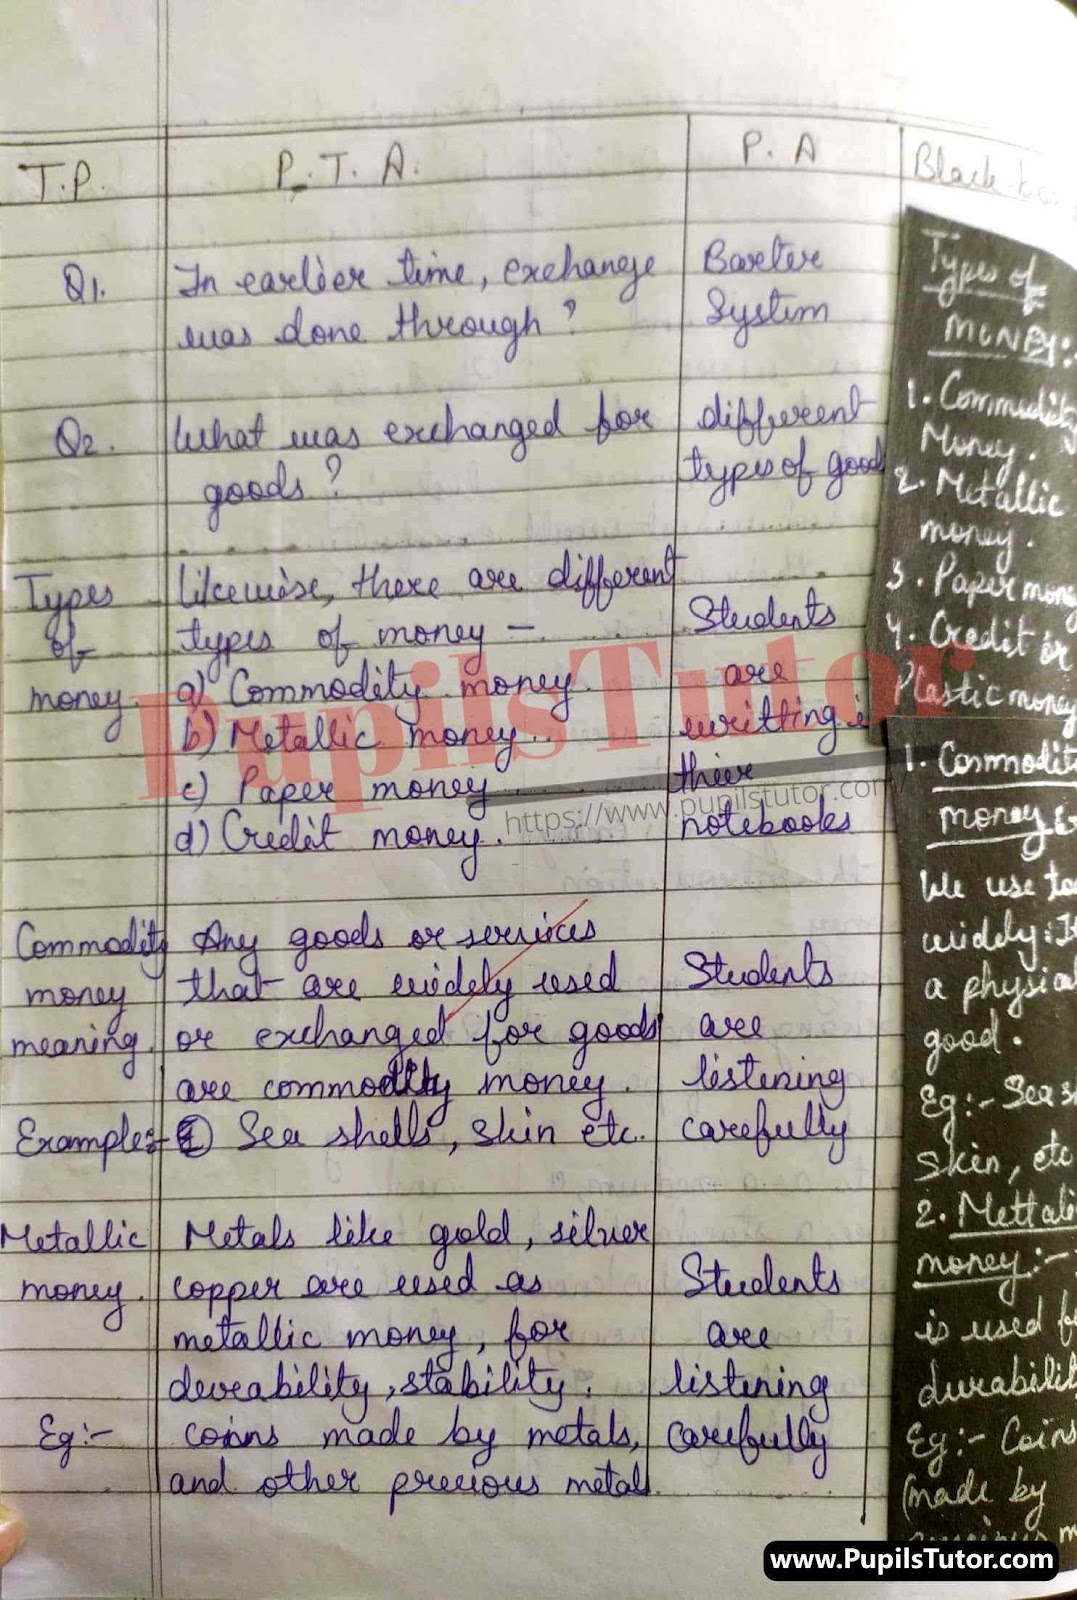 T.P.
P.T.A.
P.A
Black
Q1.
In earlier time, exchange
was done through?
Barter
System
Q2.
What was exchanged for
goods?
different
types of good
Types
of
money.
Likewise, there are different
types of money -
a) Commodity money.
b) Metallic money.
c) Paper money
d) Credit money.
Students
are
writting i
their
notebooks
Commodity
money
meaning.
Any goods or services
that are widely used
or exchanged for goods
are commodity money.
Students
are
listening
carefully
Example:-
Sea shells, skin etc.
Metallic
money.
Metals like gold, silver
copper are used as
metallic money, for
durability, stability.
Students
are
listening
carefully
Eg:-
coins made by metals,
and other precious metal.
Types of
MONEY:-
1. Commodity
Money.
2. Metallic
money.
3. Paper money
4. Credit or
Plastic money
1. Commodit
money
We use to
widely. It
a physical
good.
Eg:- Sea s
skin, etc
2. Mettali
money:-
is used f
durabilit
Eg:- Coins
(made by
m
PupilsTutor
https://www.pupilstutor.com/
www.PupilsTutor.com